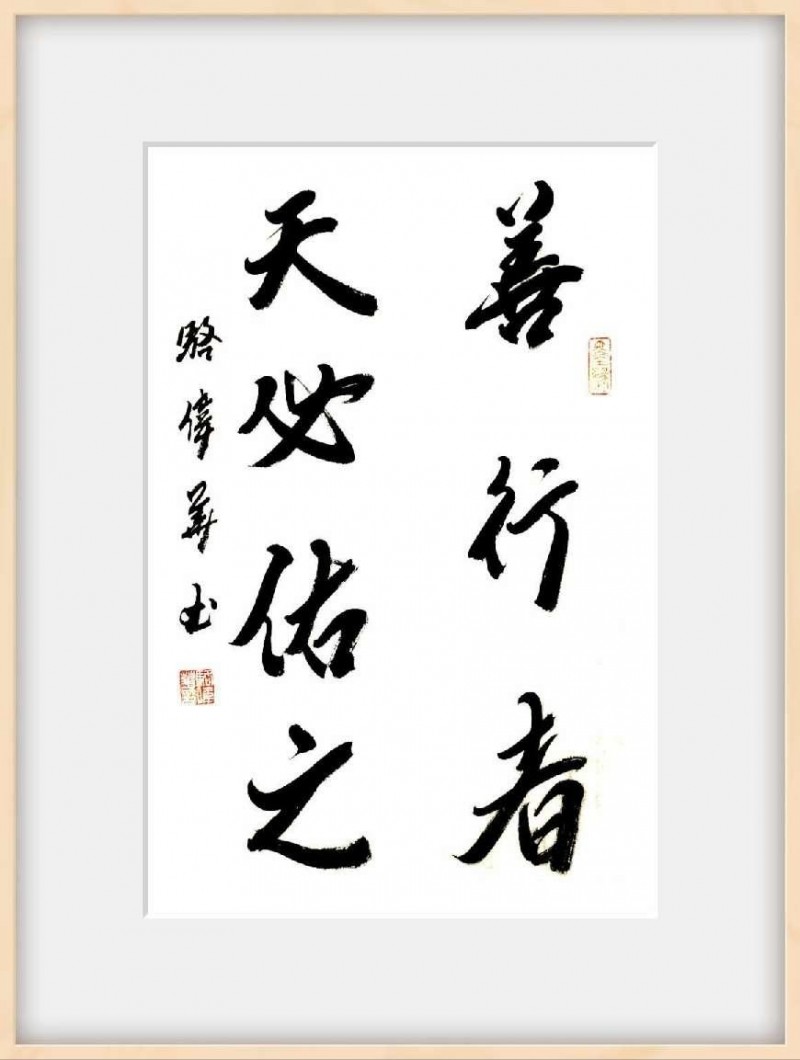 善行者
天必佑之
骆偉華书